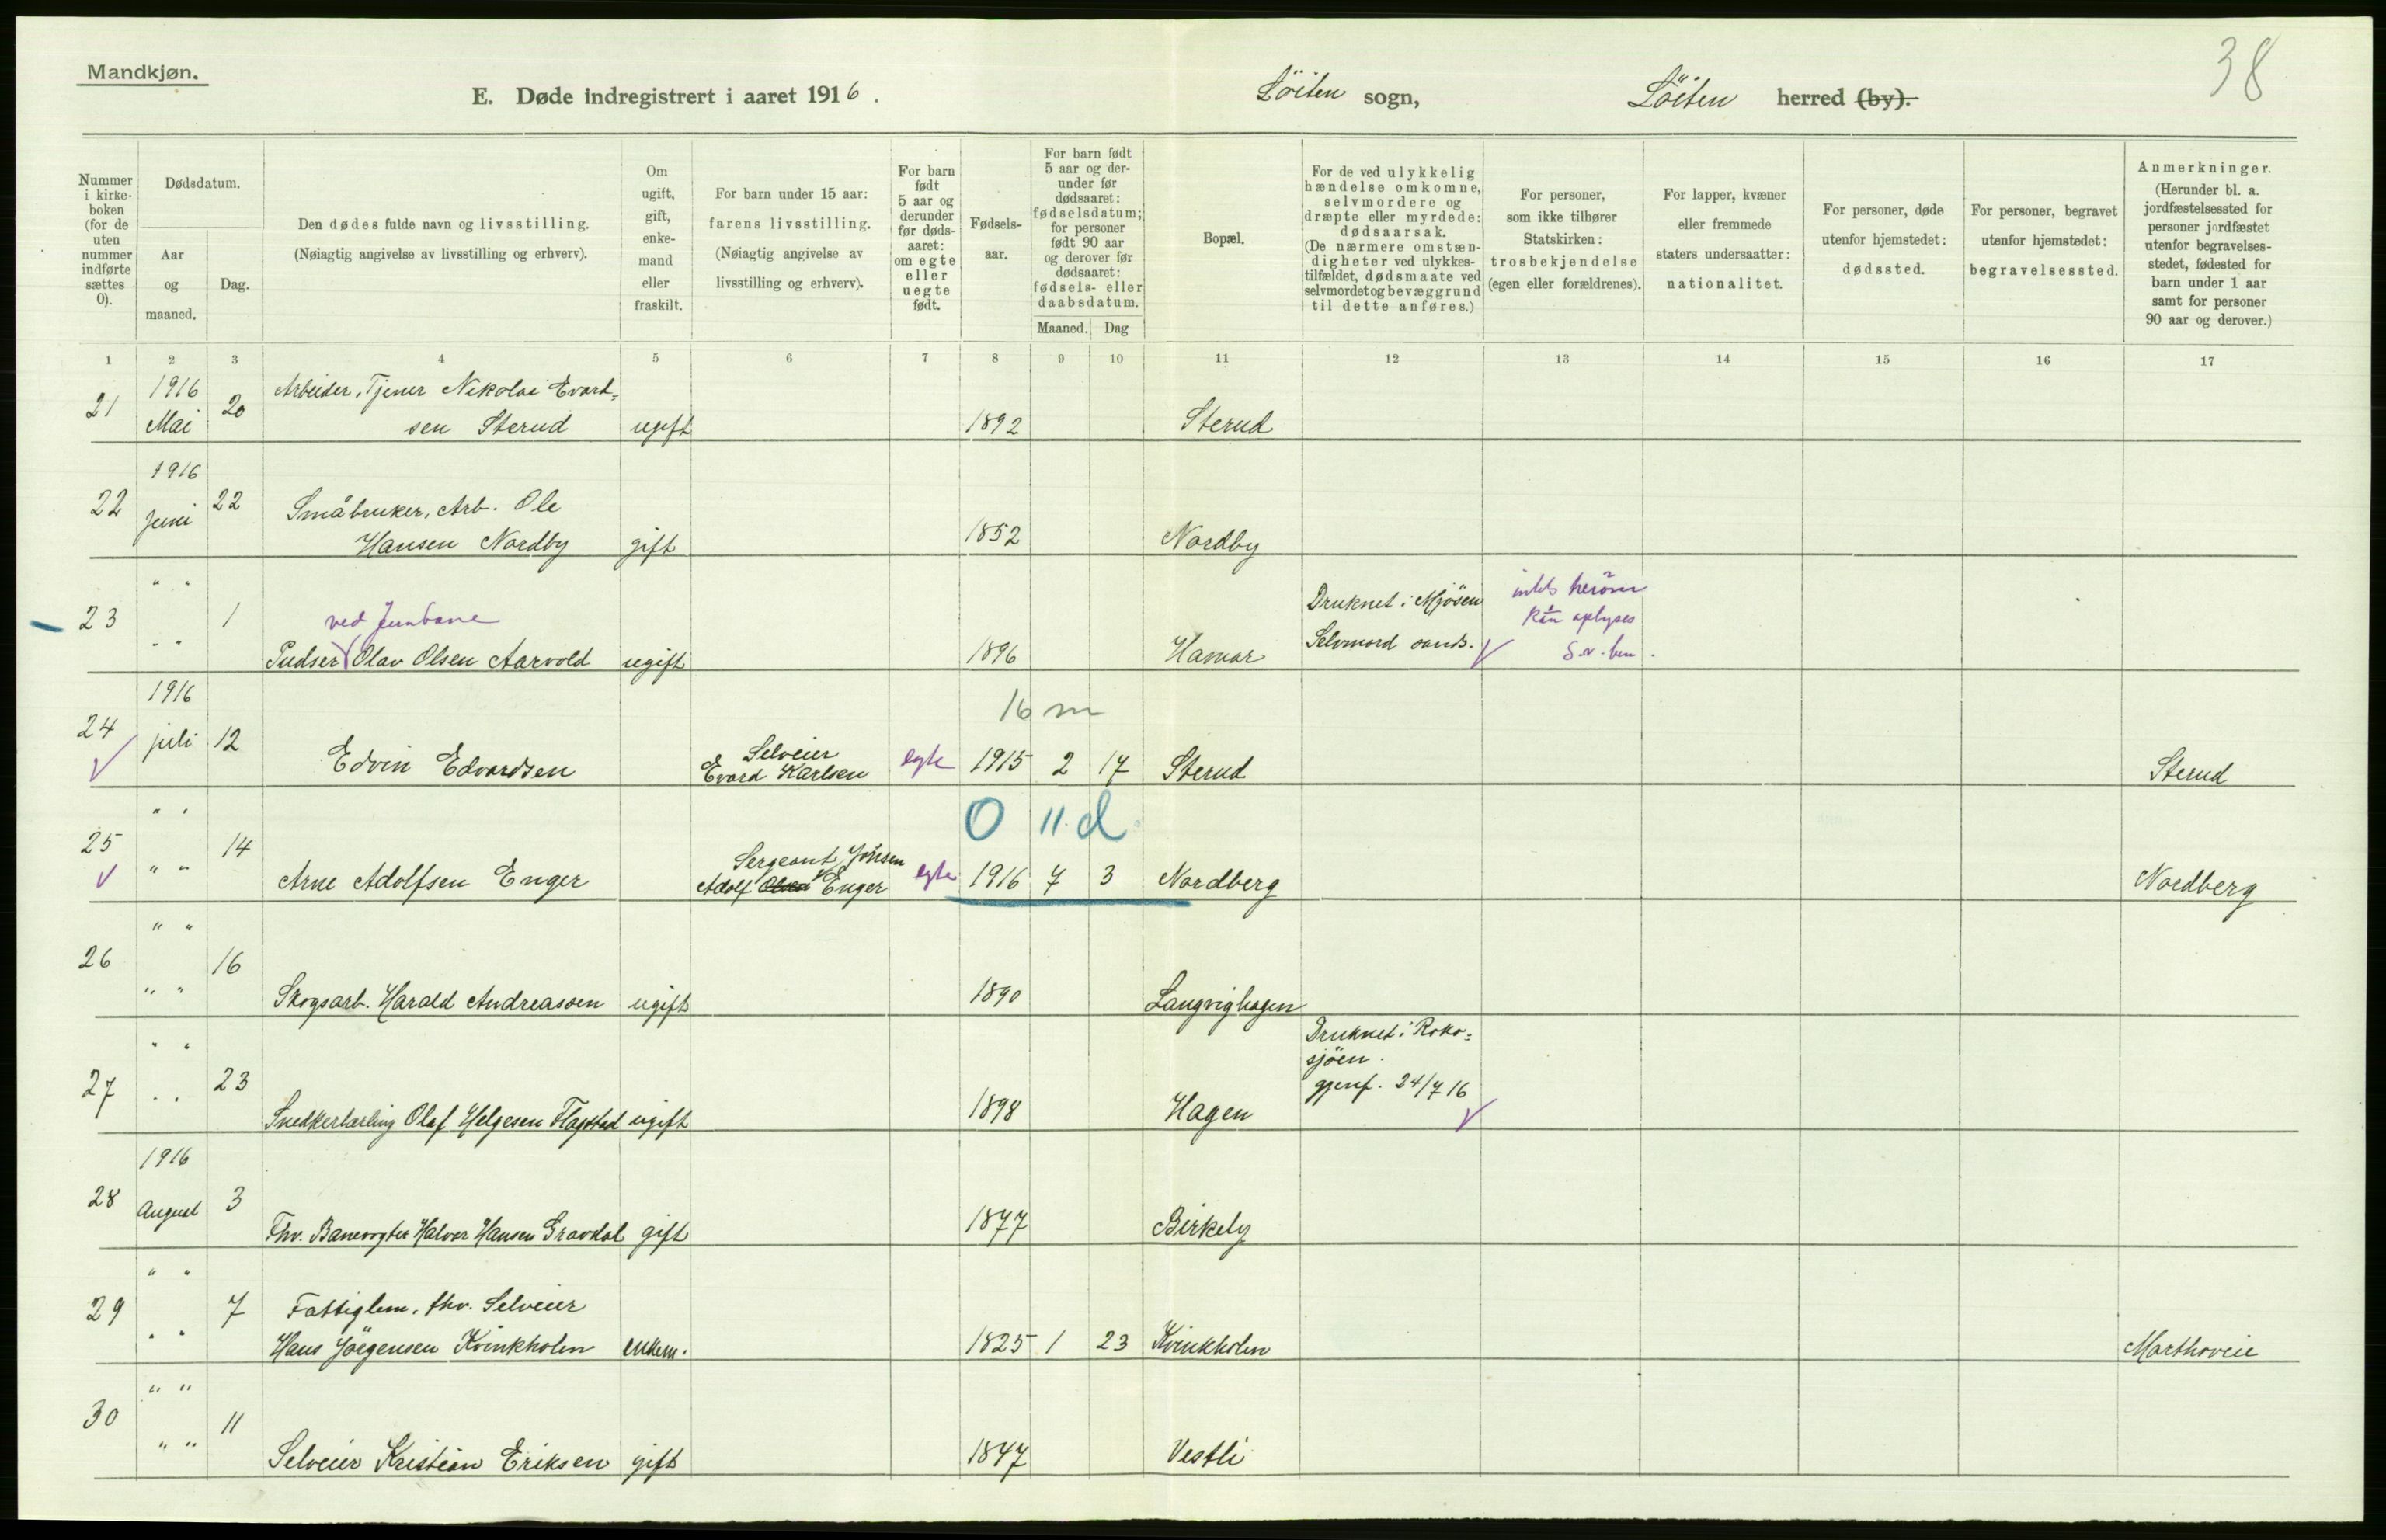 Mandkjøn.
38
E. Døde indregistrert i aaret 1916.
Löiten sogn,
Löiten herred (by).
Nummer
i kirke-
boken
(for de
uten
nummer
indførte
sættes
0).
Dødsdatum.
Aar
og
maaned.
Dag.
Den dødes fulde navn og livsstilling.
(Nøiagtig angivelse av livsstilling og erhverv).
Om
ugift,
gift,
enke-
mand
eller
fraskilt.
For barn under 15 aar:
farens livsstilling.
(Nøiagtig angivelse av
livsstilling og erhverv).
For barn
født
5 aar og
derunder
før døds-
aaret:
om egte
eller
uegte
født.
Fødsels-
aar.
For barn født
5 aar og der-
under før
dødsaaret:
fødselsdatum;
for personer
født 90 aar
og derover før
dødsaaret:
fødsels- eller
daabsdatum.
Maaned. Dag
Bopæl.
For de ved ulykkelig
hændelse omkomne,
selvmordere og
dræpte eller myrdede:
dødsaarsak.
(De nærmere omstæn-
digheter ved ulykkes-
tilfældet, dødsmaate ved
selvmordet og bevæggrund
til dette anføres.)
For personer,
som ikke tilhører
Statskirken:
trosbekjendelse
(egen eller forældrenes).
For lapper, kvæner
eller fremmede
staters undersaatter:
nationalitet.
For personer, døde
utenfor hjemstedet:
dødssted.
For personer, begravet
utenfor hjemstedet:
begravelsessted.
Anmerkninger.
(Herunder bl. a.
jordfæstelsessted for
personer jordfæstet
utenfor begravelses-
stedet, fødested for
barn under 1 aar
samt for personer
90 aar og derover.)
1 2 3 4 5 6 7 8 9 10 11 12 13 14 15 16 17
1916 Arbeider, Tjener Nikolai Evard-
21 Mai 20 sen Sterud ugift 1892 Sterud
1916
22 Juni 22 Småbruker, Arb. Ole
Hansen Nordby gift 1852 Nordby
" "
23 " " 1 ved Jernbane
Pudser Olav Olsen Aarvold ugift 1896 Hamar
Druknet i Mjösen
Selvmord sands.
intet herom
kan oplyses
S.v. ben.
1916
16 m
24 juli 12 Edvin Edvardsen
Selveier
Evard Karlsen egte 1915 2 17 Sterud Sterud
" "
0 11 d.
25 " " 14 Arne Adolfsen Enger
Sergeant Jönsen
Adolf Olsen Enger egte 1916 7 3 Nordberg Nordberg
" "
26 " " 16 Skogsarb. Harald Andreassen ugift 1890 Langvighagen
" "
27 " " 23 Snedkerlærling Olaf Helgesen Flagstad ugift 1898 Hagen
Druknet i Roko-
sjöen.
gjenf. 24/7 16
1916
28 August 3 Fhv. Banevogter Halvor Hansen Gravdal gift 1877 Birkely
" "
29 " " 7 Fattiglem, fhv. Selveier
Hans Jörgensen Kvinkholen enkem. 1825 1 23 Kvinkholen
" "
30 " " 11 Selveier Kristian Eriksen gift 1847 Vestli